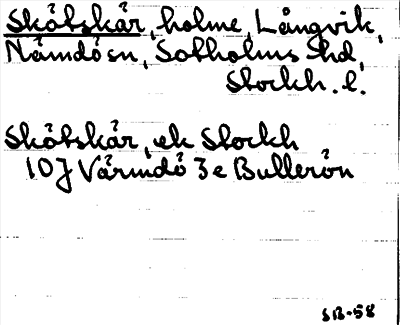 Skötskär, holme, Långvik,
Nämdö sn, Sotholms hd,
Stockh. l.
Skötskär, ek Stockh
10J Värmdö 3e Bullerön
SB-58